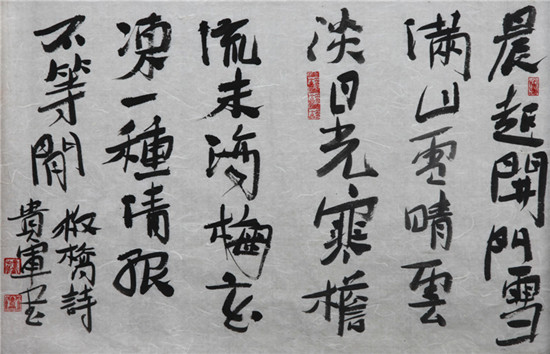 晨起開門雪
滿山雪晴雲
淡日光寒檐
流未滴梅花
凍一種清孤
不等閒
板橋詩
貴軍书